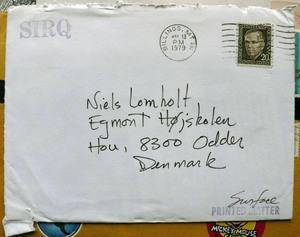 SIRQ
BILLINGS, MT
PM
1979
20
Niels Lomholt
Egmont Højskolen
Hou, 8300 Odder
Denmark
Surface
PRINTED MATTER
MICKEY MOUSE